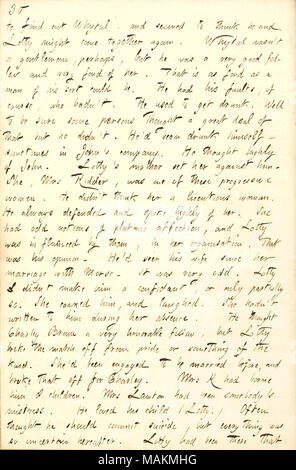 30
to find out Whytal and seemed to think he and
Lotty might come together again. Whytal wasn't
a gentleman, perhaps, but he was a very good fel-
low and very fond of her. That is as fond as a
man of his sort could be. He had his faults, of
course, who hadn't. He used to get drunk. Well
to be sure some persons thought a great deal of
that but he didn't. He'd been drunk himself —
sometimes in John's company. He thought highly
of John. Lotty's mother set her against him.
She, Mrs Kidder, was one of these progressive
women. He didn't think her a licentious woman.
He always defended and spoke highly of her. She
had odd notions of platonic affection, and Lotty
was influenced by them, in her organization. That
was his opinion. He'd seen his wife since her
marriage with Morse. It was very odd. Lotty
didn't make him a confidant, or only partially
so. She coaxed him, and laughed. She hadn't
written to him during her absence. He thought
Charley Brown a very honorable fellow, but Lotty
broke the match off from pride or something of the
kind. She'd been engaged to be married before, and
broke that off for Charley. Mrs K had borne
him 8 children. Mrs Lawton had been somebody's
mistress. He loved his child (Lotty.) Often
thought he should commit suicide, but everything was
so uncertain hereafter. Lotty had been there that